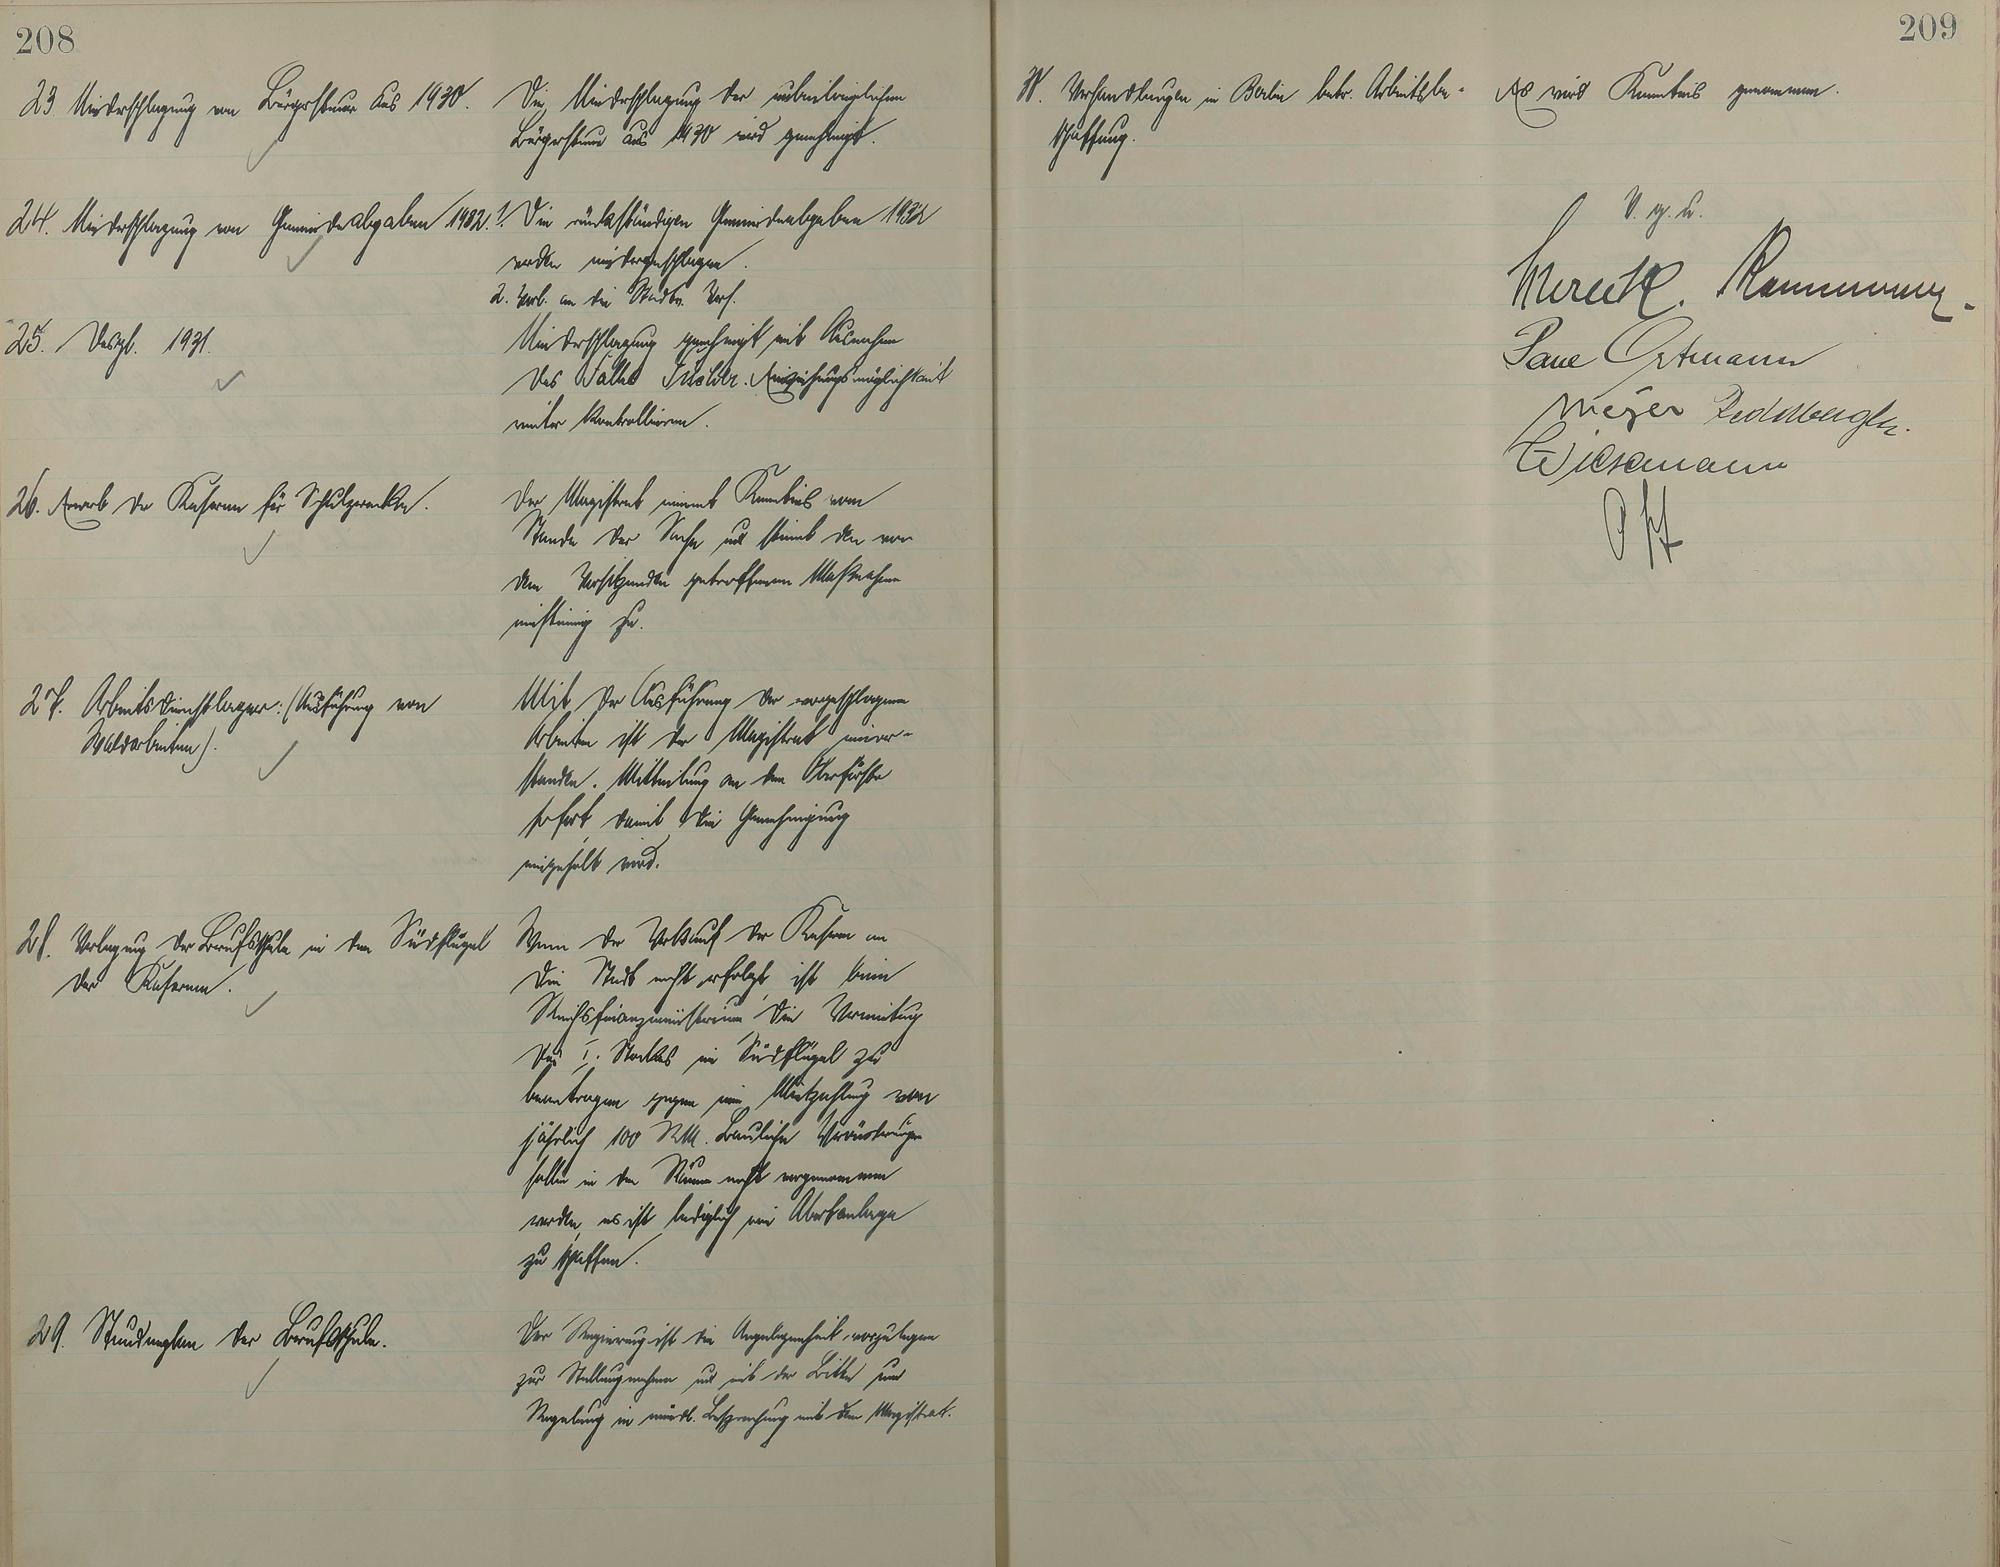 208
23 Niederschlagung von Bürgersteuer aus 1930.
Die Niederschlagung der unbeibringlichen
Bürgersteuer aus 1930 wird genehmigt.
24. Niederschlagung von Gemeindeabgaben 1932.
1. Die rückständigen Gemeindeabgaben 1932
werden niedergeschlagen.
2. Vorl. an die Stadtv. Vers.
25. Desgl. 1931.
Niederschlagung genehmigt mit Ausnahme
des Falles Einziehungsmöglichkeit
weiter kontrollieren.
26. Erwerb der Kaserne für Schulzwecke.
Der Magistrat nimmt Kenntnis vom
Stande der Sache und stimmt den von
dem Vorsitzenden getroffenen Maßnahmen
einstimmig zu.
27. Arbeitsdienstlager: (Ausführung von
Waldarbeiten).
Mit der Ausführung der vorgeschlagenen
Arbeiten ist der Magistrat einver-
standen. Mitteilung an den Oberförster
sofort, damit die Genehmigung
eingeholt wird.
28. Verlegung der Berufsschule in den Südflügel
der Kaserne.
Wenn der Verkauf der Kaserne an
die Stadt nicht erfolgt, ist beim
Reichsfinanzministerium die Vermietung
des I. Stockes im Südflügel zu
beantragen gegen eine Mietzahlung von
jährlich 100 RM. Bauliche Veränderungen
sollen in den Räumen nicht vorgenommen
werden, es ist lediglich eine Abortanlage
zu schaffen.
29. Stundenplan der Berufsschule.
Der Regierung ist die Angelegenheit vorzulegen
zur Stellungnahme und mit der Bitte um
Regelung in mündl. Besprechung mit dem Magistrat.
209
30. Verhandlungen in Berlin betr. Arbeitsbe-
schaffung.
Es wird Kenntnis genommen.
V. g. u.
Pane Ortmann
Meyer
Wiesemann